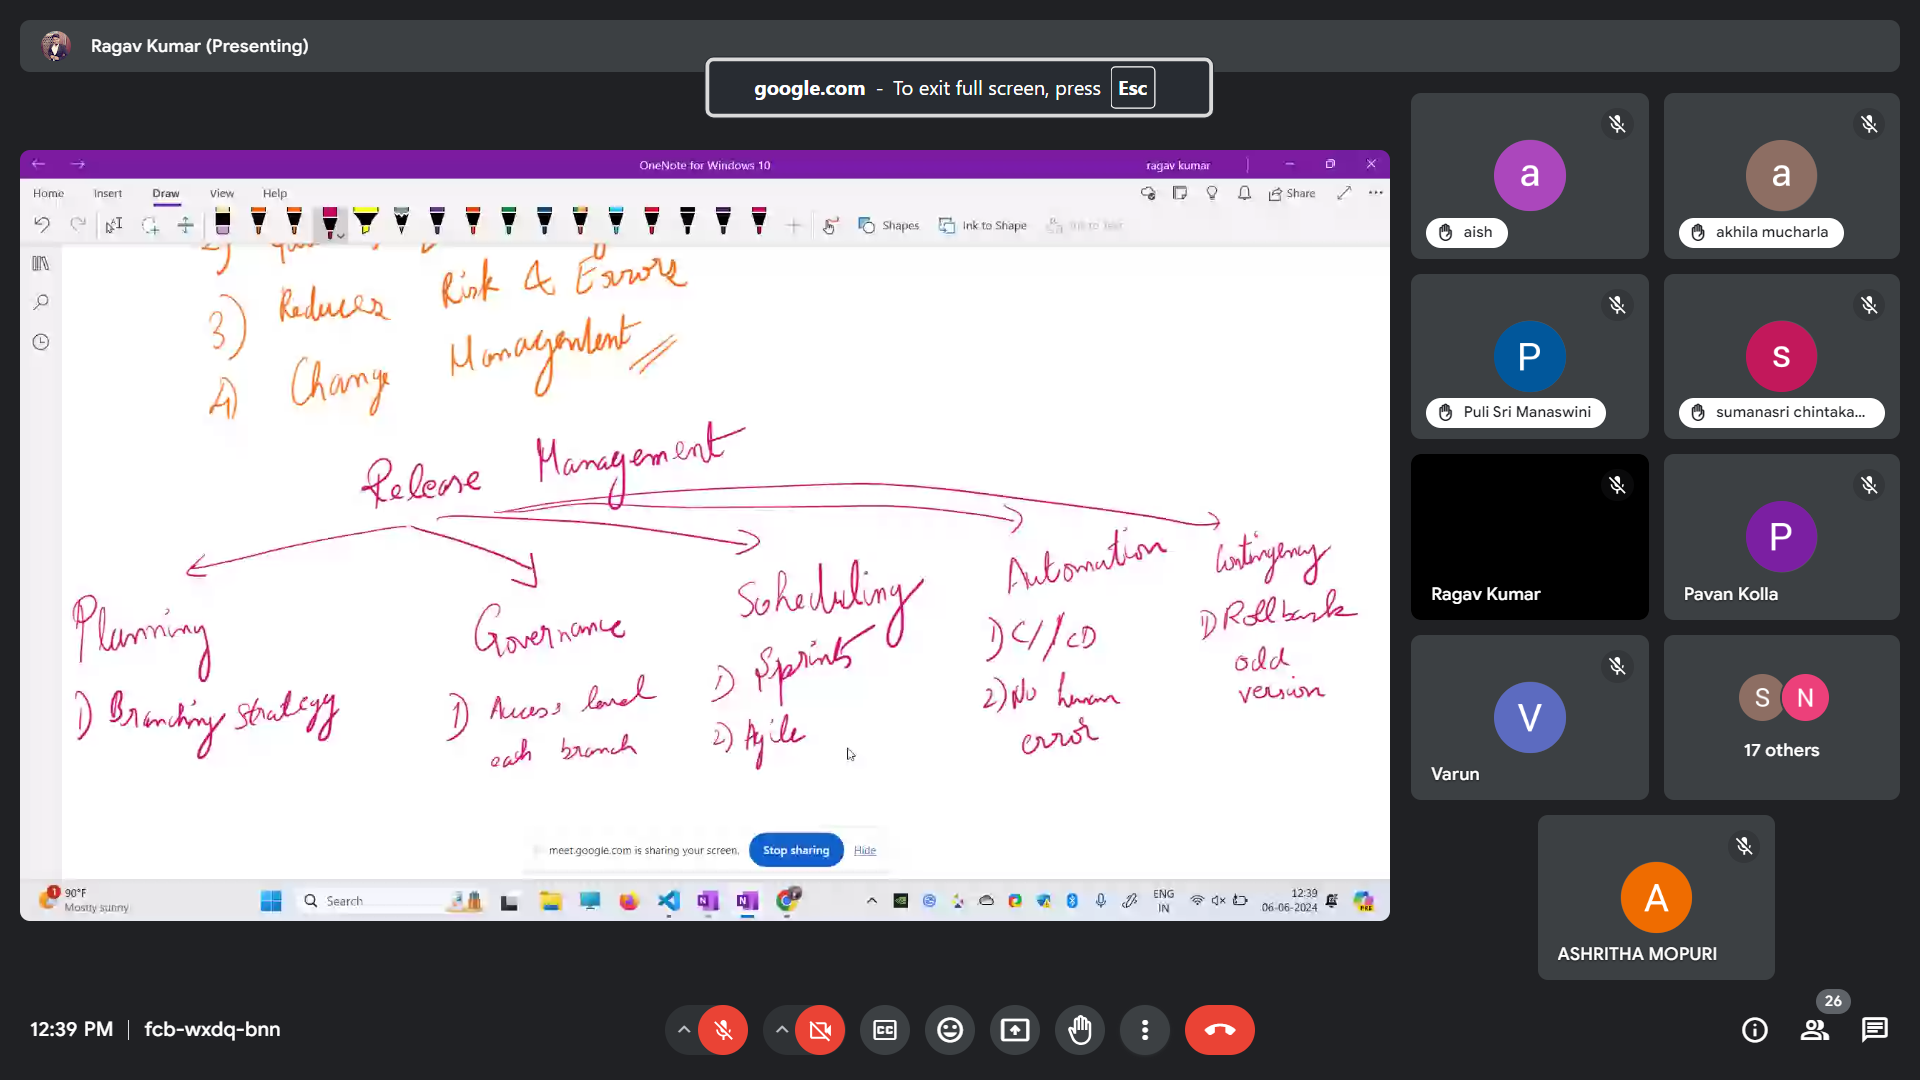 Ragav Kumar (Presenting)
google.com - To exit full screen, press Esc
OneNote for Windows 10
ragav kumar
Home Insert Draw View Help
Share
Shapes
Ink to Shape
Ink to Text
3) Reduces Risk & Errors
4) Change Management
Release Management
Planning
1) Branching strategy
Governance
1) Access level
each branch
Scheduling
1) Sprints
2) Agile
Automation
1) CI/CD
2) No human
error
Contingency
1) Rollback
odd
version
meet.google.com is sharing your screen.
Stop sharing
Hide
1
90°F
Mostly sunny
Search
ENG
IN
12:39
06-06-2024
a
aish
a
akhila mucharla
P
Puli Sri Manaswini
s
sumanasri chintaka...
Ragav Kumar
P
Pavan Kolla
V
Varun
S N
17 others
A
ASHRITHA MOPURI
12:39 PM | fcb-wxdq-bnn
CC
26